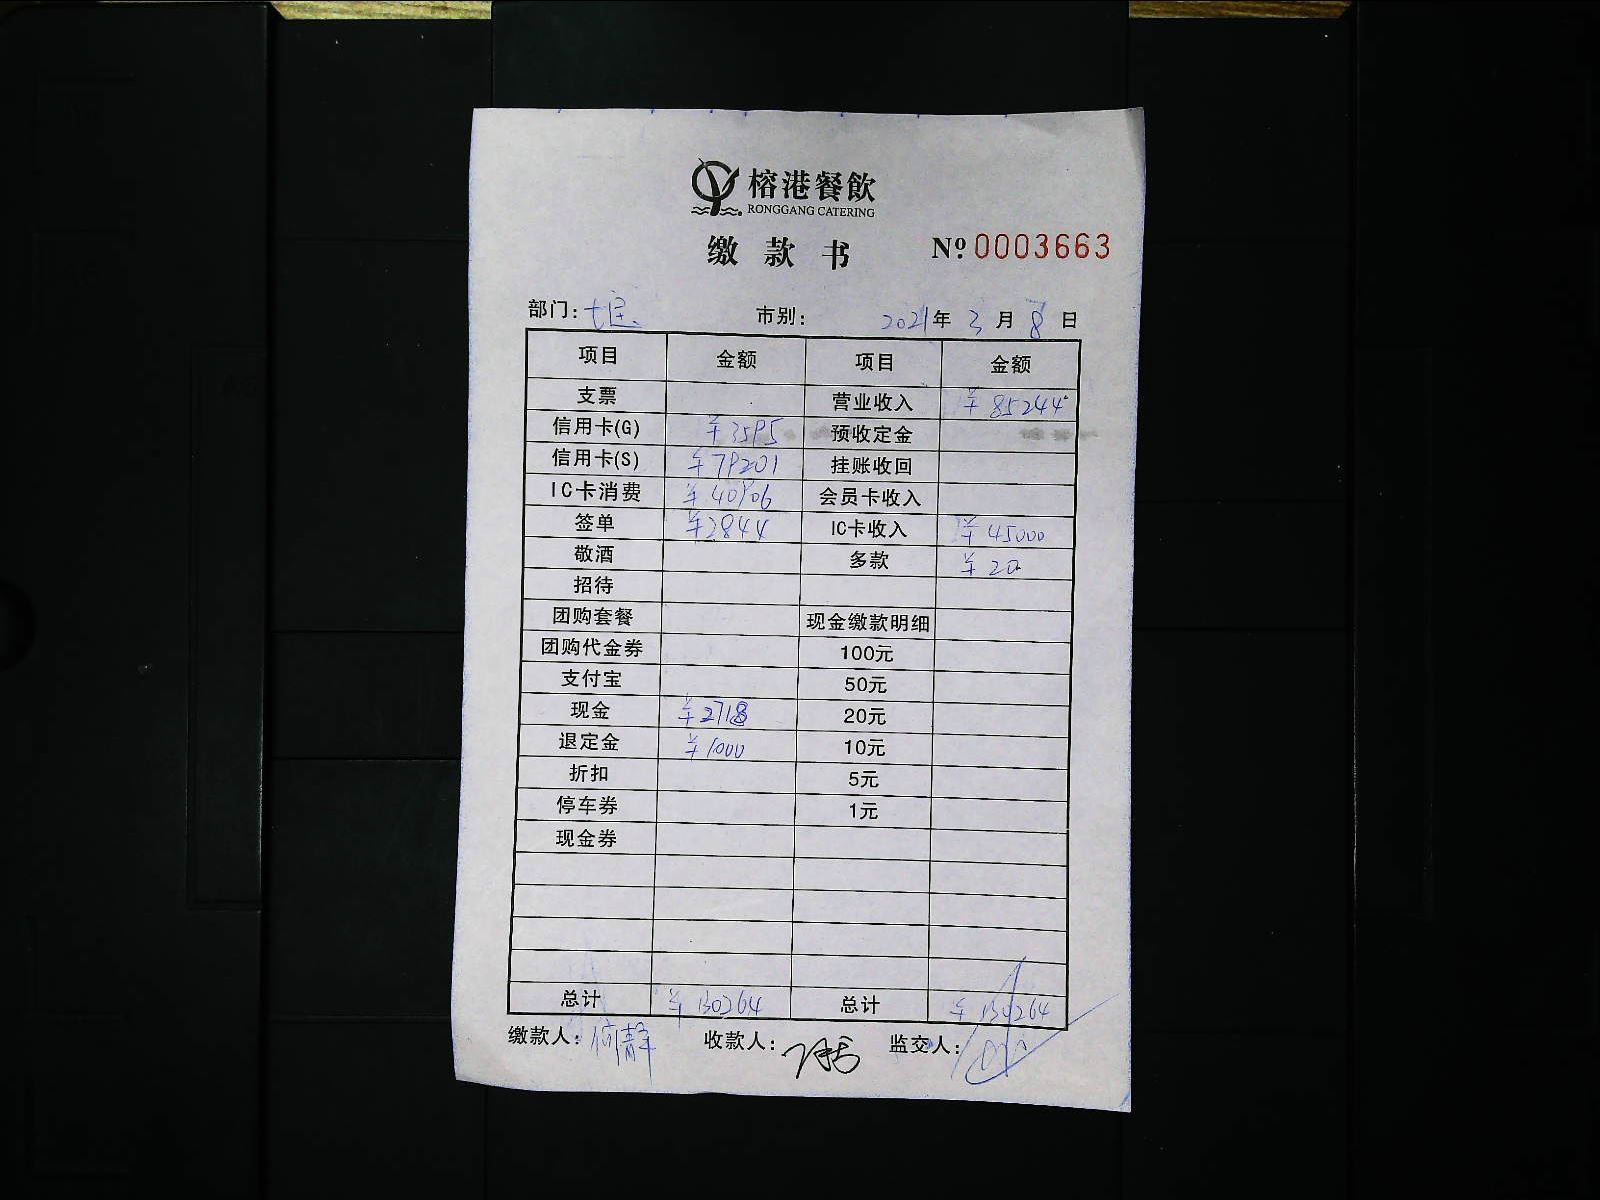 榕港餐飲
RONGGANG CATERING
缴款书 № 0003663
部门: 市别: 2021年 3月 8日
项目 金额 项目 金额
支票 营业收入 ¥85244
信用卡(G) ¥3595 预收定金
信用卡(S) ¥79201 挂账收回
IC卡消费 ¥40906 会员卡收入
签单 ¥2844 IC卡收入 ¥45000
敬酒 多款 ¥20
招待
团购套餐 现金缴款明细
团购代金券 100元
支付宝 50元
现金 ¥2718 20元
退定金 ¥1000 10元
折扣 5元
停车券 1元
现金券
总计 ¥130264 总计 ¥130264
缴款人: 何静 收款人: 监交人: